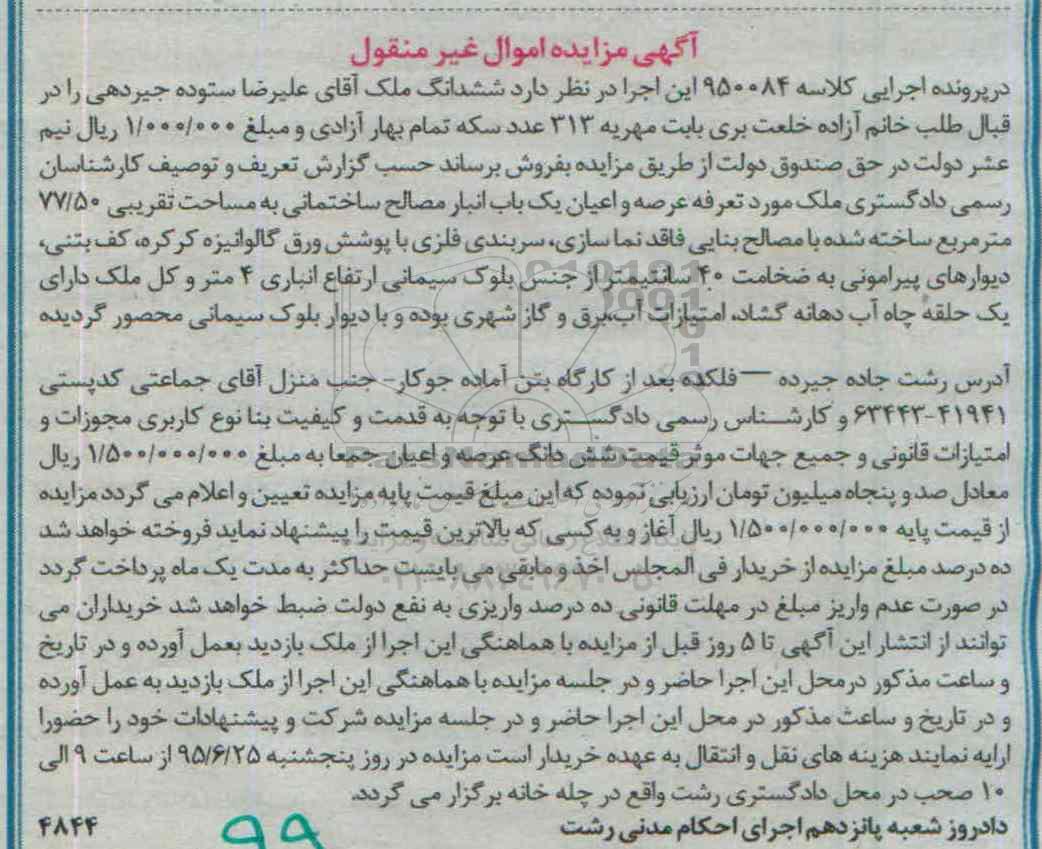 آگهی مزایده اموال غیر منقول
درپرونده اجرایی کلاسه ۹۵۰۰۸۴ این اجرا در نظر دارد ششدانگ ملک آقای علیرضا ستوده جیردهی را در
قبال طلب خانم آزاده خلعت بری بابت مهریه ۳۱۳ عدد سکه تمام بهار آزادی و مبلغ ۱/۰۰۰/۰۰۰ ریال نیم
عشر دولت در حق صندوق دولت از طریق مزایده بفروش برساند حسب گزارش تعریف و توصیف کارشناسان
رسمی دادگستری ملک مورد تعرفه عرصه و اعیان یک باب انبار مصالح ساختمانی به مساحت تقریبی ۷۷/۵۰
مترمربع ساخته شده با مصالح بنایی فاقد نما سازی، سربندی فلزی با پوشش ورق گالوانیزه کرکره، کف بتنی،
دیوارهای پیرامونی به ضخامت ۴۰ سانتیمتر از جنس بلوک سیمانی ارتفاع انباری ۴ متر و کل ملک دارای
یک حلقه چاه آب دهانه گشاد، امتیازات آب،برق و گاز شهری بوده و با دیوار بلوک سیمانی محصور گردیده
آدرس رشت جاده جیرده — فلکده بعد از کارگاه بتن آماده جوکار- جنب منزل آقای جماعتی کدپستی
۴۱۹۴۱-۶۳۴۴۳ و کارشناس رسمی دادگستری با توجه به قدمت و کیفیت بنا نوع کاربری مجوزات و
امتیازات قانونی و جمیع جهات موثر قیمت شش دانگ عرصه و اعیان جمعا به مبلغ ۱/۵۰۰/۰۰۰/۰۰۰ ریال
معادل صد و پنجاه میلیون تومان ارزیابی نموده که این مبلغ قیمت پایه مزایده تعیین و اعلام می گردد مزایده
از قیمت پایه ۱/۵۰۰/۰۰۰/۰۰۰ ریال آغاز و به کسی که بالاترین قیمت را پیشنهاد نماید فروخته خواهد شد
ده درصد مبلغ مزایده از خریدار فی المجلس اخذ و مابقی می بایست حداکثر به مدت یک ماه پرداخت گردد
در صورت عدم واریز مبلغ در مهلت قانونی ده درصد واریزی به نفع دولت ضبط خواهد شد خریداران می
توانند از انتشار این آگهی تا ۵ روز قبل از مزایده با هماهنگی این اجرا از ملک بازدید بعمل آورده و در تاریخ
و ساعت مذکور درمحل این اجرا حاضر و در جلسه مزایده با هماهنگی این اجرا از ملک بازدید به عمل آورده
و در تاریخ و ساعت مذکور در محل این اجرا حاضر و در جلسه مزایده شرکت و پیشنهادات خود را حضورا
ارایه نمایند هزینه های نقل و انتقال به عهده خریدار است مزایده در روز پنجشنبه ۹۵/۶/۲۵ از ساعت ۹ الی
۱۰ صحب در محل دادگستری رشت واقع در چله خانه برگزار می گردد.
دادروز شعبه پانزدهم اجرای احکام مدنی رشت
۴۸۴۴
۹۹